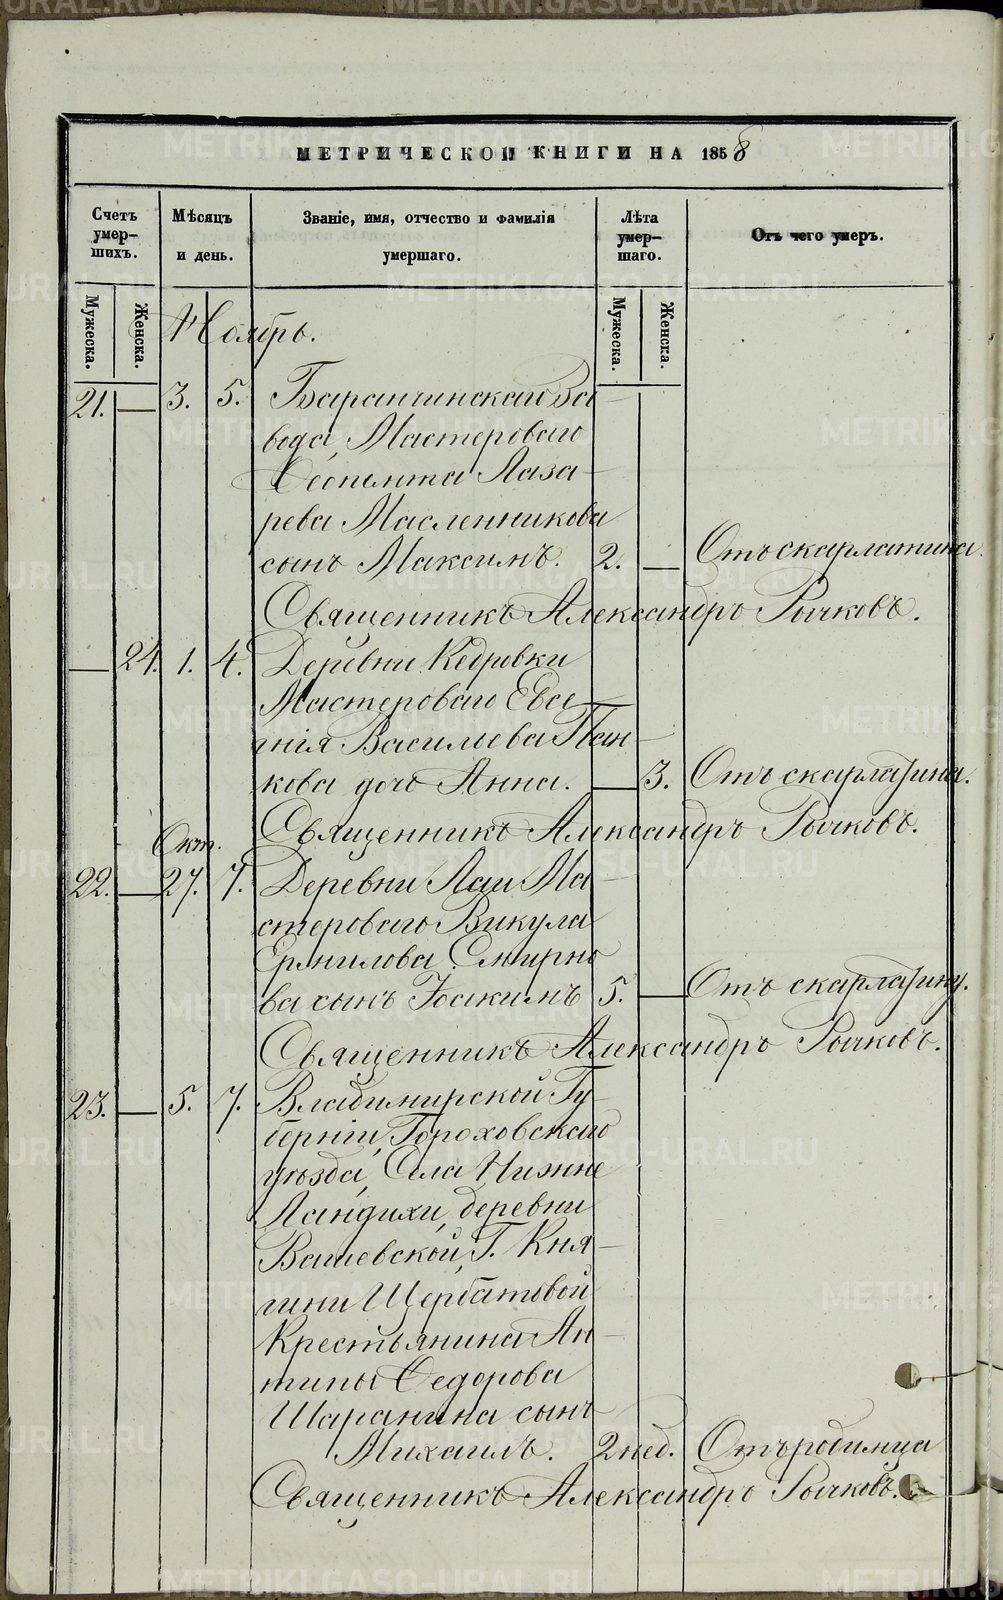 МЕТРИЧЕСКОЙ КНИГИ НА 1858
Счетъ умер-шихъ.
Мѣсяцъ и день.
Званіе, имя, отчество и фамилія умершаго.
Лѣта умер-шаго.
Отъ чего умеръ.
Мужеска.
Женска.
Мужеска.
Женска.
Ноябрь.
21. — 3. 5. Баранчинскаго За-
вода, Мастероваго
Феопемта Лаза-
рева Масленникова
сынъ Максимъ. 2. — Отъ скарлатина.
Священникъ Александръ Рычковъ.
— 24. 1. 4. Деревни Кедровки
Мастероваго Евсе-
гнія Васильева Пан-
кова дочь Анна. — 3. Отъ скарлатина.
Священникъ Александръ Рычковъ.
Окт.
22. — 27. 7. Деревни Лаи Ма-
стероваго Викула
Ермилова Смирно-
ва сынъ Іоакимъ 5. — Отъ скарлатину.
Священникъ Александръ Рычковъ.
23. — 5. 7. Владимирской Гу-
берніи, Гороховскаго
уѣзда, Села Нижне
Ландихи, деревни
Вашевской, Г. Кня-
гини Щербатовой
Крестьянина Ан-
типы Федорова
Шаранина сынъ
Михаилъ. 2 нед. Отъ родимца
Священникъ Александръ Рычковъ.
METRIKI.GASO-URAL.RU